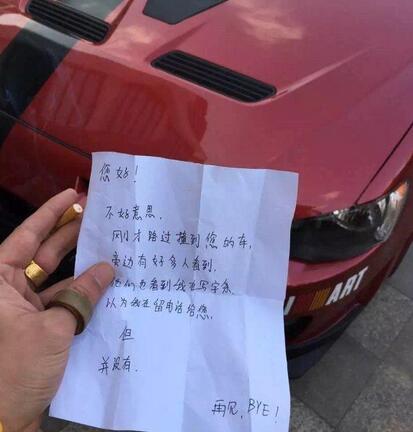 您好!
不好意思,
刚才路过撞到您的车,
旁边有好多人看到,
他们也看到我在写字条
以为我在留电话给您,
但
并没有.
再见, BYE!
ART